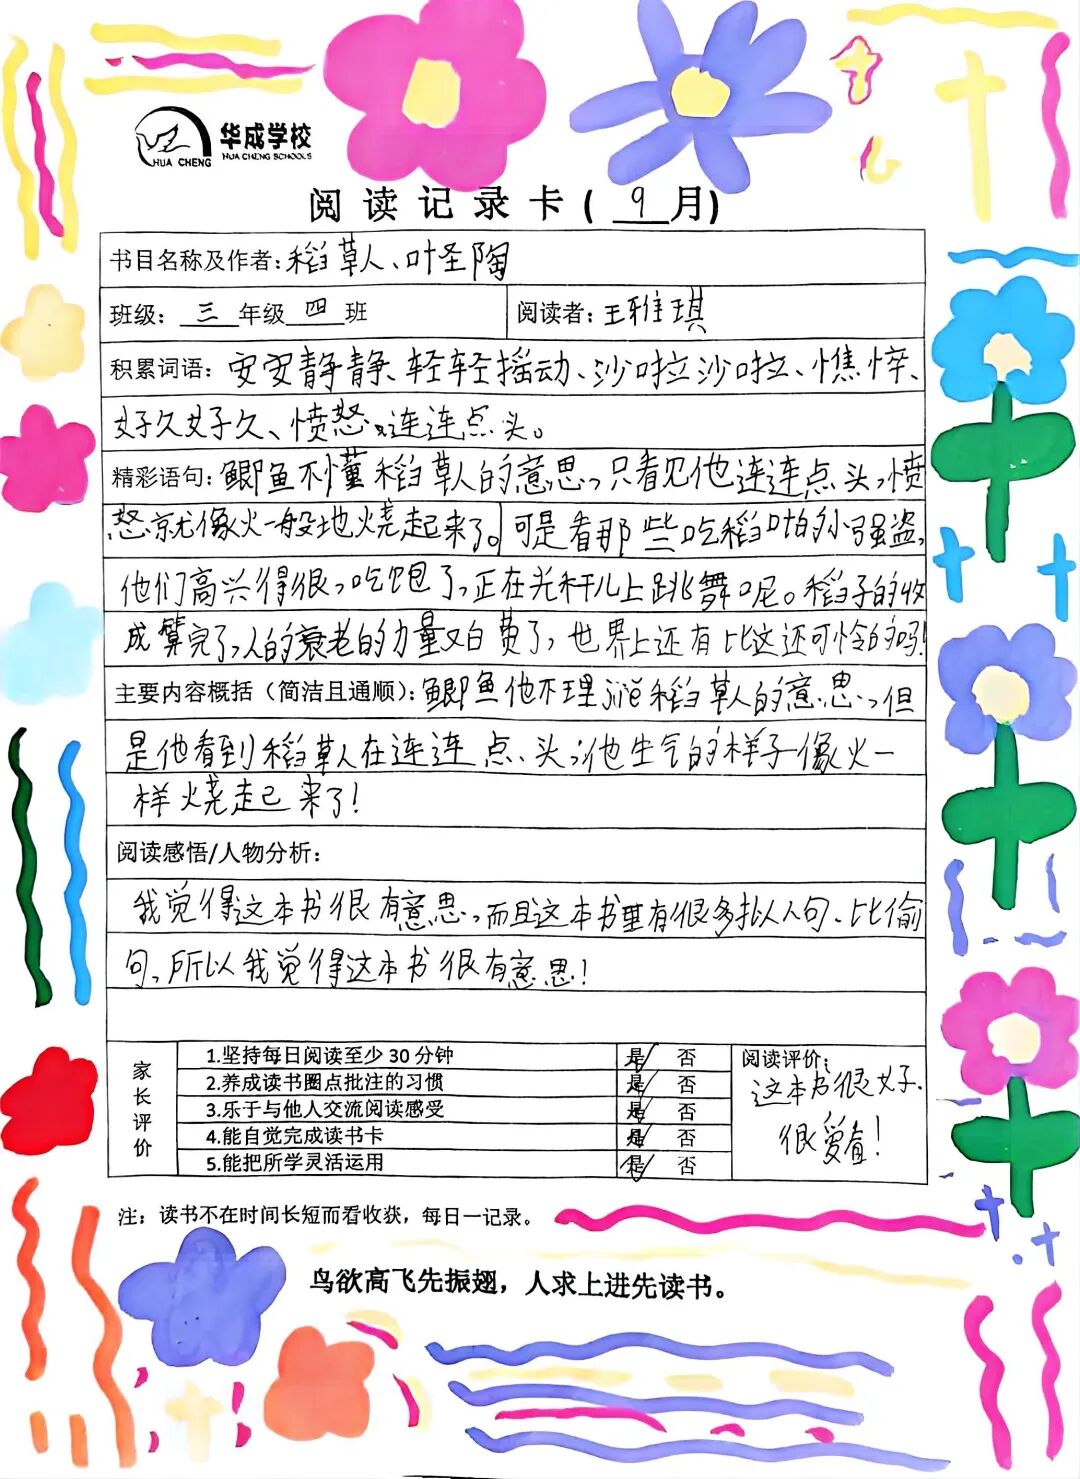 华成学校
HUA CHENG HUA CHENG SCHOOLS
阅读记录卡(9月)
书目名称及作者:稻草人、叶圣陶
班级:三年级四班 阅读者:王雅琪
积累词语:安安静静、轻轻摇动、沙啦沙啦、憔悴、
好久好久、愤怒、连连点头。
精彩语句:鲫鱼不懂稻草人的意思,只看见他连连点头,愤
怒就像火一般地烧起来了。可是看那些吃稻的小强盗,
他们高兴得很,吃饱了,正在光秆儿上跳舞呢。稻子的收
成算完了,人的衰老的力量又白费了,世界上还有比这还可怜的吗!
主要内容概括(简洁且通顺):鲫鱼他不理说稻草人的意思,但
是他看到稻草人在连连点、头,他生气的样子像火一
样烧起来了!
阅读感悟/人物分析:
我觉得这本书很有意思,而且这本书里有很多拟人句、比偷
句,所以我觉得这本书很有意思!
家长评价
1.坚持每日阅读至少30分钟 是 否
2.养成读书圈点批注的习惯 是 否
3.乐于与他人交流阅读感受 是 否
4.能自觉完成读书卡 是 否
5.能把所学灵活运用 是 否
阅读评价:
这本书很好.
很爱看!
注:读书不在时间长短而看收获,每日一记录。
鸟欲高飞先振翅,人求上进先读书。